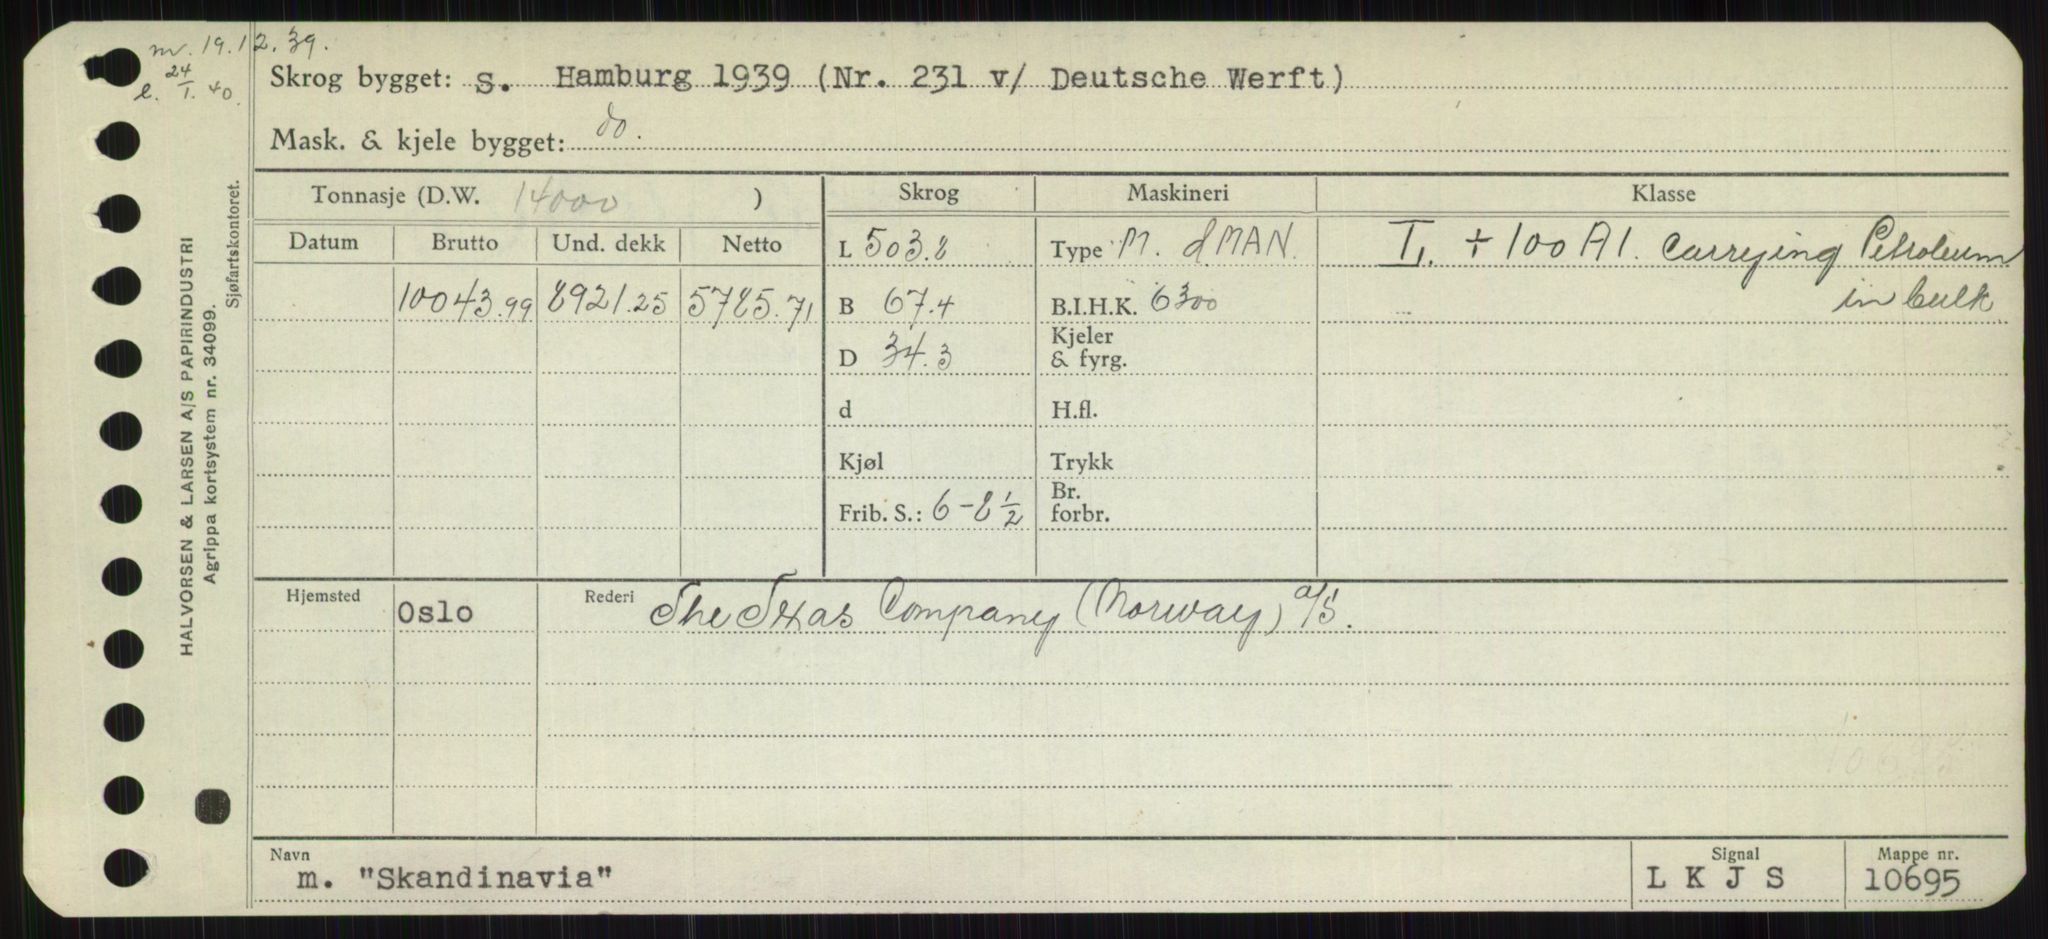 nv. 19.12.39.
e. 24/1. 40.
Skrog bygget: s. Hamburg 1939 (Nr. 231 v/ Deutsche Werft)
Mask. & kjele bygget: do.
Tonnasje (D.W. 14000 )
Skrog
Maskineri
Klasse
Datum Brutto Und. dekk Netto
L 503.8
Type M. dMAN.
L. + 100 A1. carrying Petroleum
in bulk
10043.99 8921.25 5785.71
B 67.4
B.I.H.K. 6300
D 34.3
Kjeler
& fyrg.
d
H.fl.
Kjøl
Trykk
Frib. S.: 6-8 1/2
Br.
forbr.
Hjemsted Oslo
Rederi The Texas Company (Norway) a/s.
10695
Navn
m. "Skandinavia"
Signal
L K J S
Mappe nr.
10695
HALVORSEN & LARSEN A/S PAPIRINDUSTRI
Agrippa kortsystem nr. 34099.
Sjøfartskontoret.